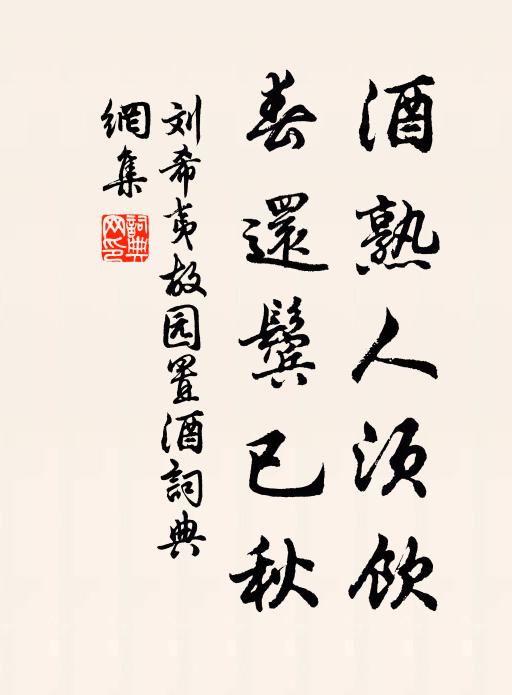 酒熟人須飲
春還鬓已秋
刘希夷故园置酒詞典
網集
詞典
网印